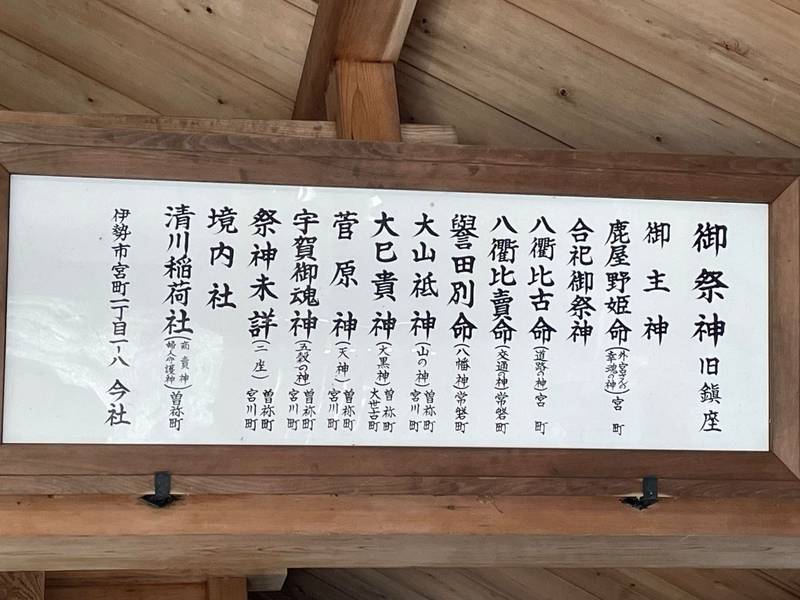 御祭神 旧鎮座
御主神
鹿屋野姫命(外宮さんの幸魂の神)宮町
合祀御祭神
八衢比古命(道路の神)宮町
八衢比賣命(交通の神)常磐町
譽田別命(八幡神)常磐町
大山祇神(山の神)曽祢町 宮川町
大巳貴神(大黒神)曽祢町 大世古町
菅原神(天神)曽祢町 宮川町
宇賀御魂神(五穀の神)曽祢町 宮川町
祭神未詳(二座)曽祢町 宮川町
境内社
清川稲荷社(商賣神 婦人守護神)曽祢町
伊勢市宮町一丁目一ノ八 今社